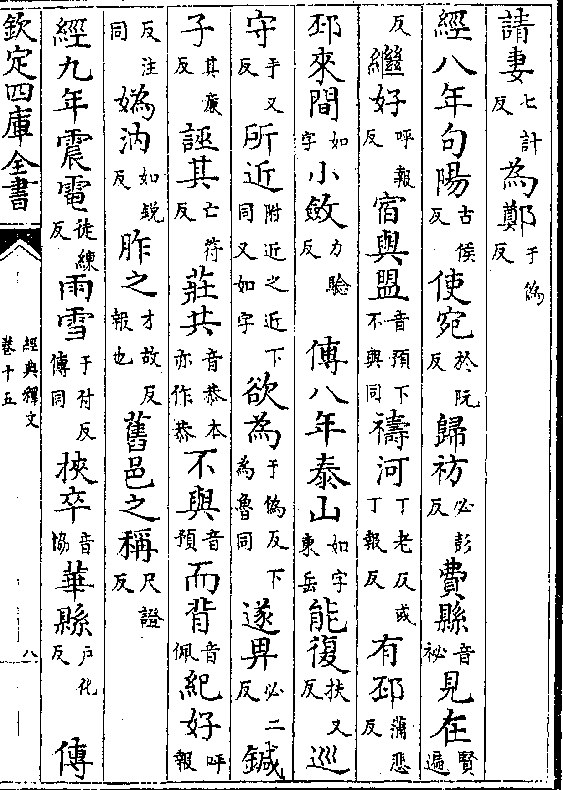 請妻七計反為鄭于偽反
經八年句陽古侯反使宛於阮反歸祊必彭反費縣音祕見在賢遍
反繼好呼報反宿與盟音預下不與同禱河丁老反或丁報反有邳蒲悲反
邳來間如字小斂力驗反　傳八年泰山如字東岳能復扶又反巡
守手又反所近附近之近下同又如字欲為于偽反下為魯同遂畀必二反鍼
子其廉反誣其亡符反莊共音恭本亦作恭不與音預而背音佩紀好呼報
反注同媯汭如銳反胙之才故反報也舊邑之稱尺證反
經九年震電徒練反雨雪于付反傳同挾卒音協華縣戶化反　傳
欽定四庫全書
經典釋文
卷十五
八